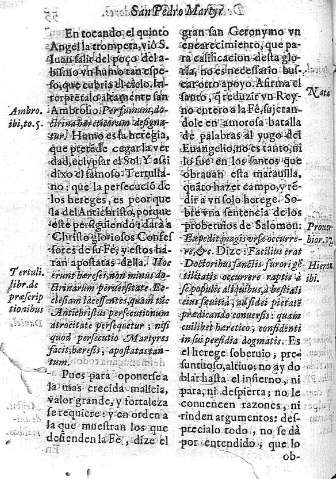 San Pedro Martyr.
En tocando el quinto
Angel la trompeta, vió S.
Iuan salir del poço del a-
bismo vn humo tan espe-
so, que cubria el cielo. In-
terpretalo altamente san
Ambrosio.
trinam hæreticorum designa-
tur. Humo es la heregia,
que pretēde cegar la ver
dad, eclypsar el Sol. Y assi
dixo el famoso Tertulia-
no, que la persecució de
los hereges, es peor que
la del Antichristo, porque
este persiguiendo dará a
Christo gloriosos Confes
sores de su Fè, y estos ha-
ran apostatas della. Hoc
erunt hæreses, non minus do-
ctrinarum peruersitate Ec-
clesiam lacessentes, quam tūc
Antichristus persequutionum
atrocitate persequetur; nisi
quod persecutio Martyres
facit, hæresis, apostatas tan-
tum.
Pues para oponerse a
la mas crecida malicia,
valor grande, y fortaleza
se requiere: y en orden a
la que muestran los que
defienden la Fè, dize el
Ambro.
ibi, to. 5.
Tertuli.
libr. de
præscrip
tionibus
gran san Geronymo vn
encarecimiento, que pa-
ra calificacion desta glo-
ria, no es necessario bus-
car otro apoyo. Afirma el
santo, q̄ reduzir vn Rey-
no entero a la Fè, sujetan-
dole en amorosa batalla
de palabras al yugo del
Euangelio, no es tanto, ni
lo fue en los santos que
obrauan esta marauilla,
quāto hazer campo, y rē-
dir a vn solo herege. So-
bre vna sentencia de los
prouerbios de Salomon:
Expedit magis vrsæ occurre-
re, &c. Dize: Facilius erat
Doctoribus fancti
tilitatis occurrere raptis à
se populis alijsque, à bestiali
eius sæuitia, ad fidei pietatē
prædicando conuersis: quam
cuilibet hæretico, confidenti
in sui perfidia dogmatis. Es
el herege soberuio, pre-
suntuoso, altiuo: no ay do
blar hasta el infierno, ni
para, ni despierta; no le
conuencen razones, ni
rinden argumentos: des-
precialo todo, no se dà
por entendido, que lo
ob-
Nota
Prouer
bior. 17.
Hieron.
ibi.